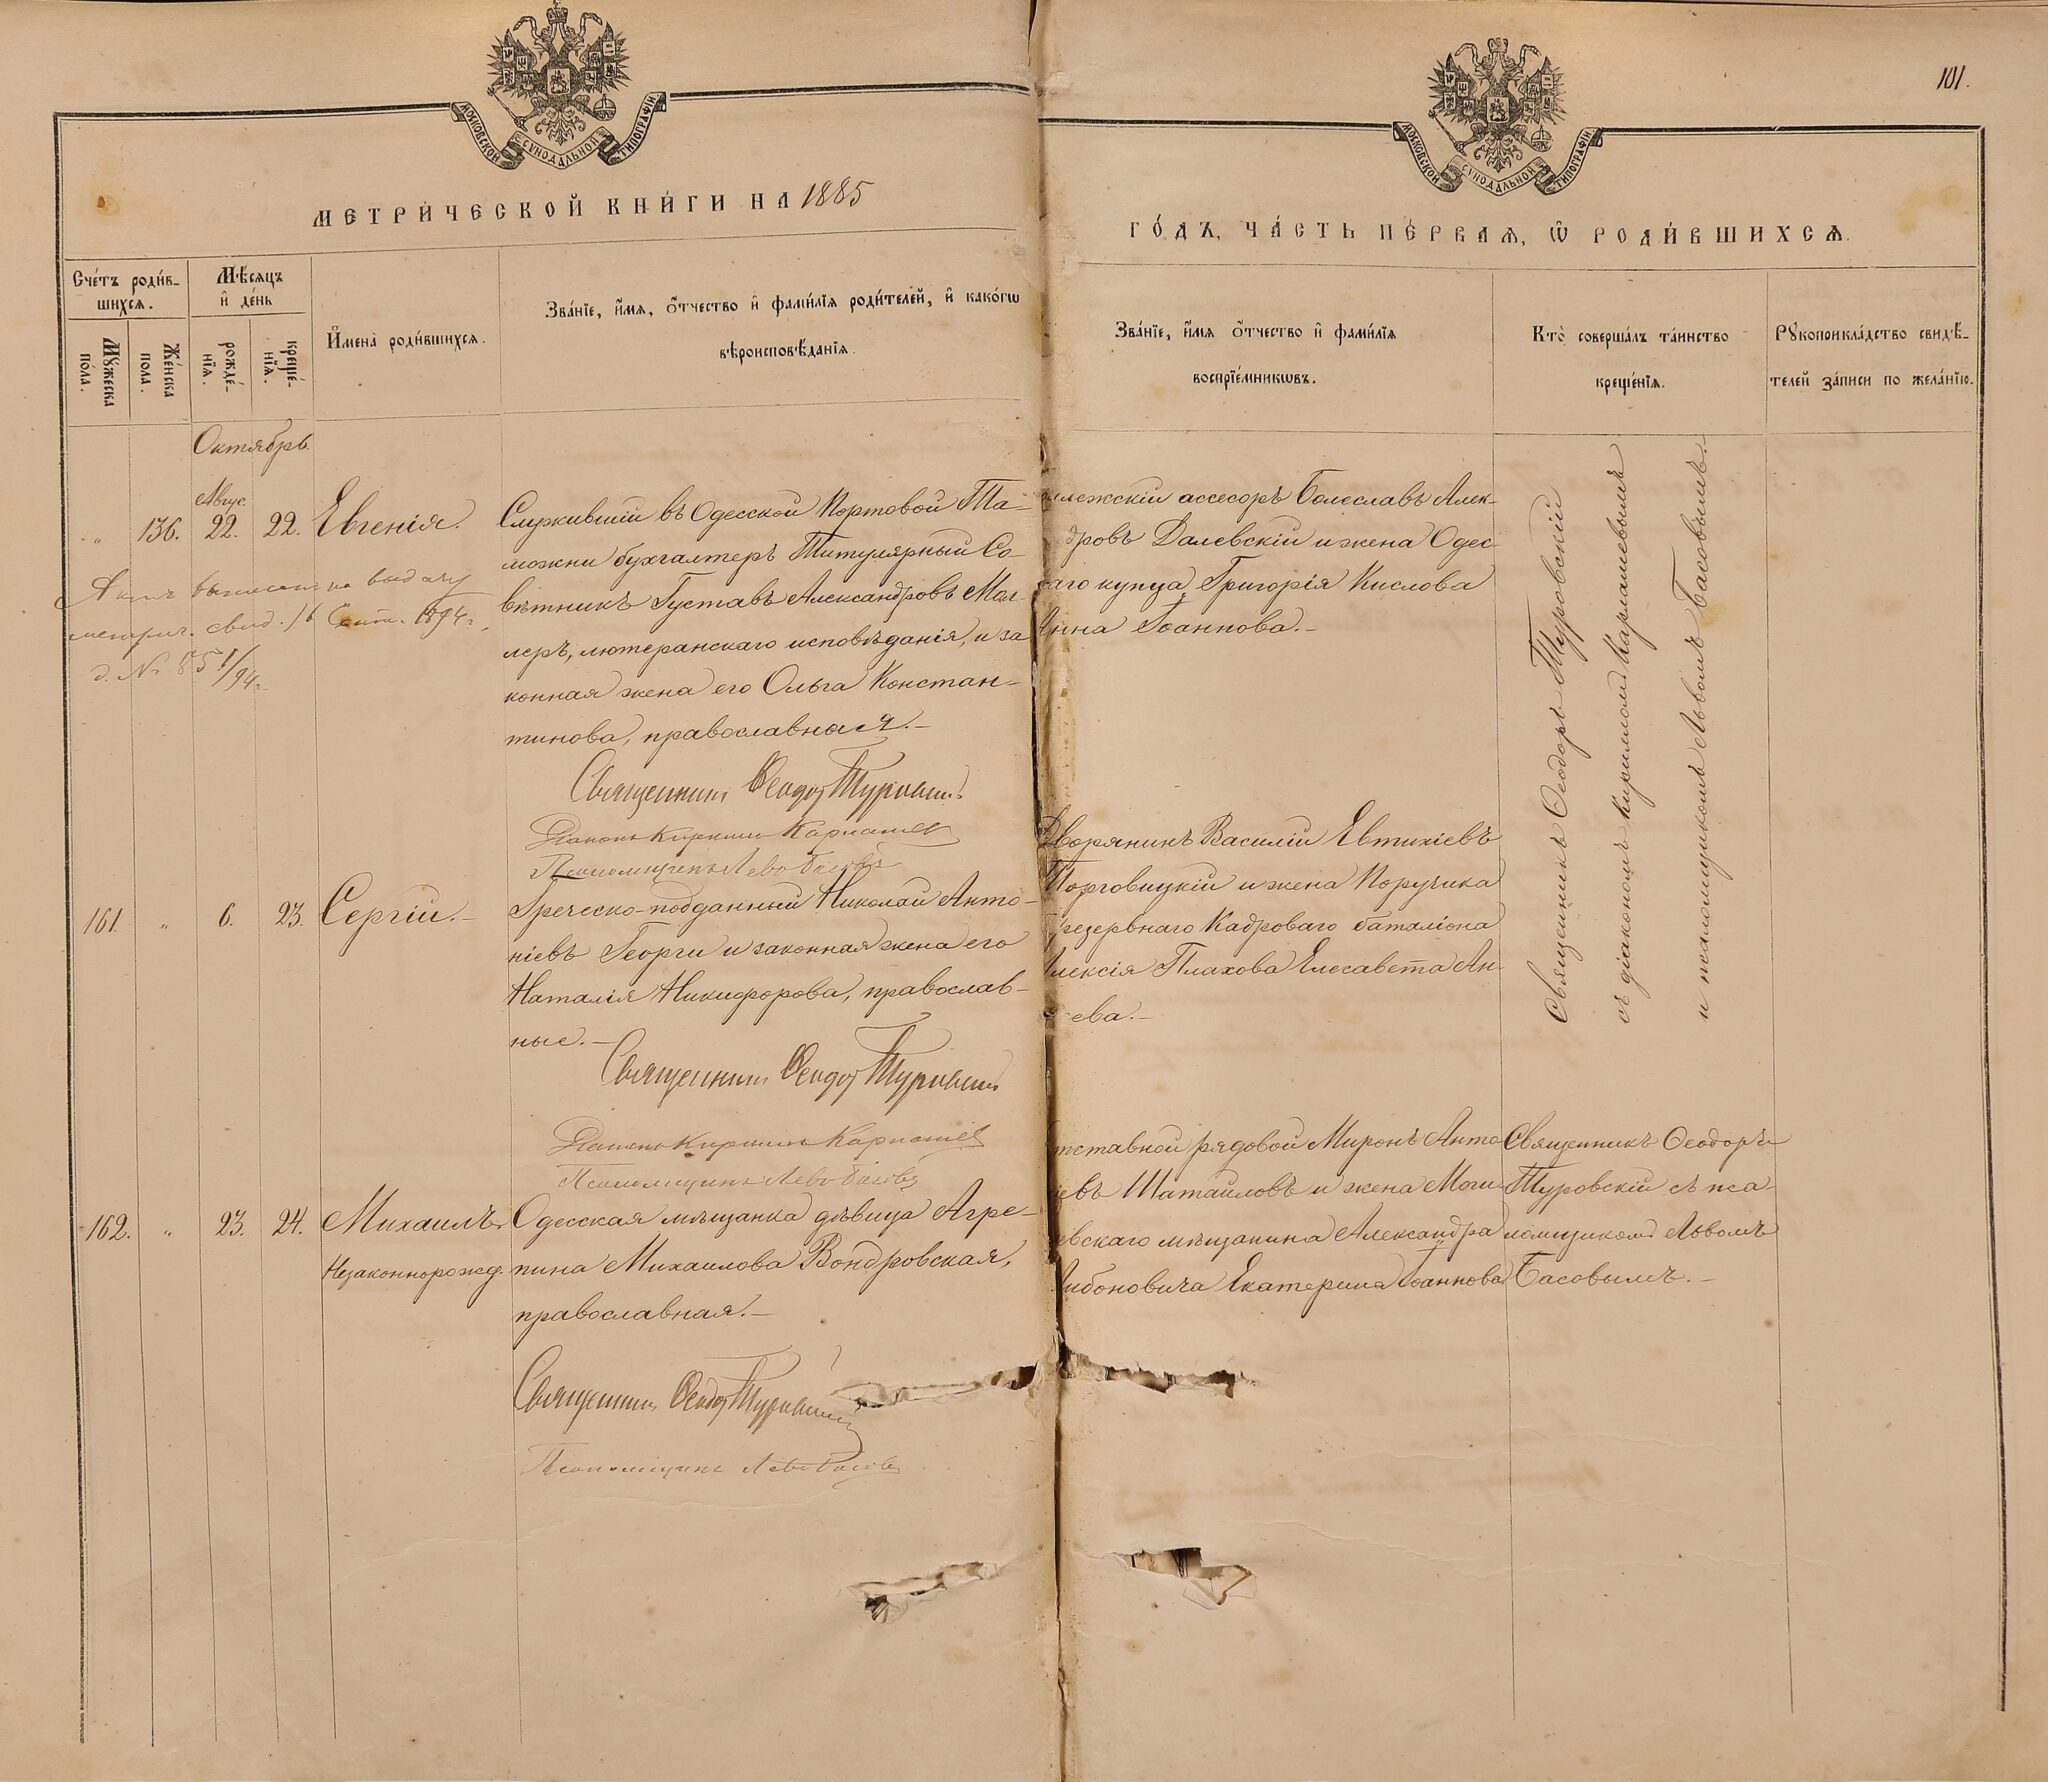 МОСКОВСКОЙ СУНОДАЛЬНОЙ ТИПОГРАФІИ
МОСКОВСКОЙ СУНОДАЛЬНОЙ ТИПОГРАФІИ
101.
МЕТРИ́ЧЕСКОЙ КНИ́ГИ НА 1885
ГО́ДЪ, ЧА́СТЬ ПЕ́РВАЯ, Ѿ РОДИ́ВШИХСЯ.
Сче́тъ роди́в-
шихся.
Мꙋ́жеска
по́ла.
Же́нска
пола.
Мѣ́сяцъ
и҆ де́нь
рожде́-
нїя.
креще́-
нїя.
И҆мена̀ роди́вшихся.
Зва́нїе, и҆́мя, ѻ҆́тчество и҆ фами́лїя роди́телей, и҆ како́гѡ
вѣроисповѣ́данїя.
Зва́нїе, и҆́мя ѻ҆́тчество и҆ фами́лїя
воспрїе́мникѡвъ.
Кто̀ соверша́лъ та́инство
креще́нїя.
Рꙋкоприкла́дство свидѣ́-
телей за́писи по жела́нїю.
Октябрь.
Авгус.
„ 136. 22. 22. Евгенія.
Служившій въ Одесской Портовой Та-
можни бухгалтеръ Титулярный Со-
вѣтникъ Густавъ Александровъ Мол-
леръ, лютеранскаго исповѣданія, и за
конная жена его Ольга Констан-
тинова, православная.-
Актъ выписанъ на выдачу
метрич. свид. 16 Сент. 1894 г.
д. № 851/94 г.
Священникъ Ѳеодоръ Туровскій
Діаконъ Кириллъ Карпашев
Псаломщикъ Левъ Басовъ
ллежскій ассесоръ Болеславъ Алек-
дровъ Далевскій и жена Одес-
аго купца Григорія Кислова
Анна Іоаннова.-
Священникъ Ѳеодоръ Туровскій
съ діакономъ Кирилломъ Карпашевымъ
и псаломщикомъ Львомъ Басовымъ.
161. „ 6. 23. Сергій.-
Греческо-подданный Николай Анто-
ніевъ Георги и законная жена его
Наталія Никифорова, православ-
ные.-
Священникъ Ѳеодоръ Туровскій
Діаконъ Кириллъ Карпашев
Псаломщикъ Левъ Басовъ
Дворянинъ Василій Евтихіевъ
Торговицкій и жена Поручика
резервнаго Кадроваго баталіона
Алексія Плахова Елисавета Ан-
ева.-
162. „ 23. 24. Михаилъ
Незаконнорожд.
Одесская мѣщанка дѣвица Агре-
пина Михаилова Вондровская,
православная.-
Священникъ Ѳеодоръ Туровскій
Псаломщикъ Левъ Басовъ
тставной рядовой Миронъ Анто
евъ Шатайловъ и жена Моги-
евскаго мѣщанина Александра
ибоновича Екатерина Іоаннова
Священникъ Ѳеодоръ
Туровскій съ пса-
ломщикомъ Львомъ
Басовымъ.-